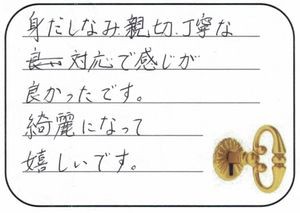 身だしなみ、親切、丁寧な
対応で感じが
良かったです。
綺麗になって
嬉しいです。